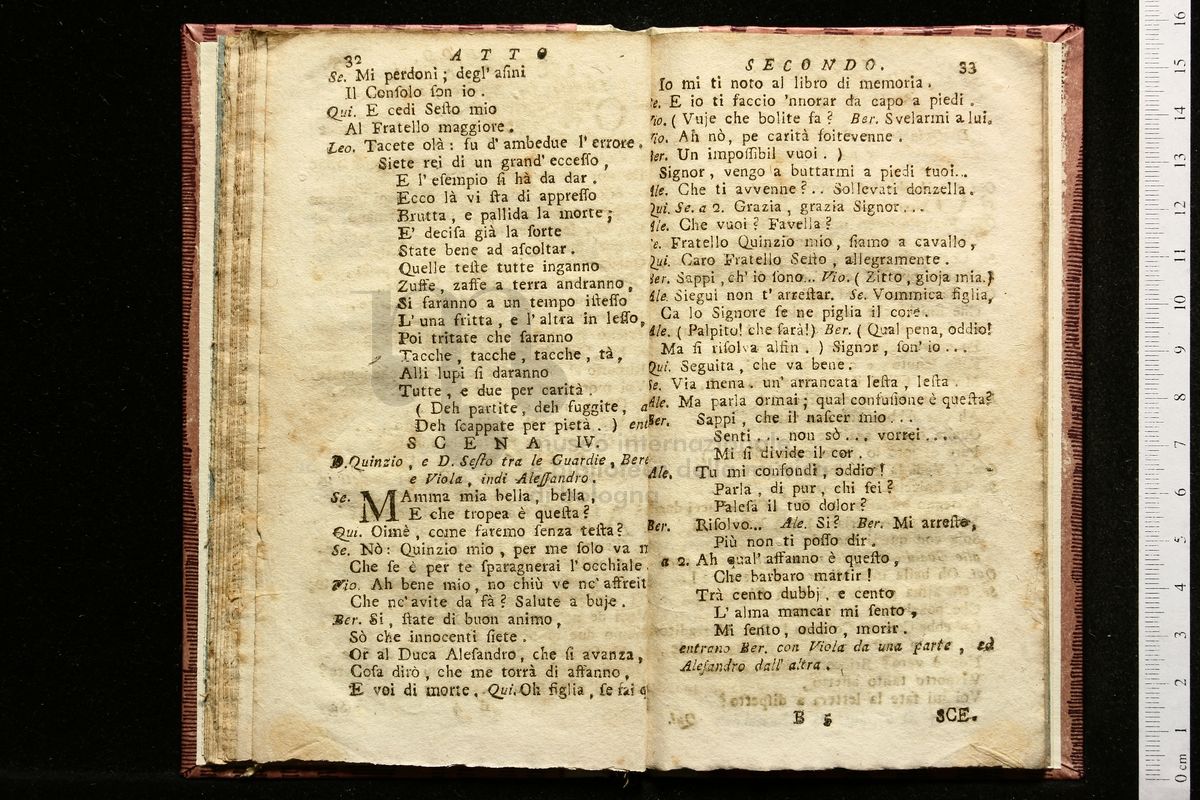 32 A T T O
Se. Mi perdoni; degl' aſini
Il Conſolo ſon io.
Qui. E cedi Seſto mio
Al Fratello maggiore.
Leo. Tacete olà: ſu d' ambedue l' errore.
Siete rei di un grand' ecceſſo,
E l' eſempio ſi hà da dar.
Ecco là vi ſta di appreſſo
Brutta, e pallida la morte;
E' deciſa già la ſorte
State bene ad aſcoltar.
Quelle teſte tutte inganno
Zuffe, zaffe a terra andranno,
Si faranno a un tempo iſteſſo
L' una fritta, e l' altra in leſſo,
Poi tritate che ſaranno
Tacche, tacche, tacche, tà,
Alli lupi ſi daranno
Tutte, e due per carità.
( Deh partite, deh fuggite, a
Deh ſcappate per pietà. ) ent
S C E N A IV.
D. Quinzio, e D. Seſto tra le Guardie, Bere
e Viola, indi Aleſſandro.
Se. MAmma mia bella, bella,
E che tropea è queſta?
Qui. Oimè, come faremo ſenza teſta?
Se. Nò: Quinzio mio, per me ſolo va
Che ſe è per te ſparagnerai l' occhiale.
Vio. Ah bene mio, no chiù ve nc' affreit
Che nc' avite da fà? Salute a buje.
Ber. Si, ſtate di buon animo,
Sò che innocenti ſiete.
Or al Duca Aleſandro, che ſi avanza,
Coſa dirò, che me torrà di affanno,
E voi di morte. Qui. Oh figlia, ſe fai q
SECONDO. 33
Io mi ti noto al libro di memoria.
e. E io ti faccio 'nnorar da capo a piedi.
Vio. ( Vuje che bolite fa? Ber. Svelarmi a lui.
Vio. Ah nò, pe carità ſoitevenne.
Ber. Un impoſſibil vuoi. )
Signor, vengo a buttarmi a piedi tuoi...
Ale. Che ti avvenne?.. Sollevati donzella.
Qui. Se. a 2. Grazia, grazia Signor...
Ale. Che vuoi? Favella?
e. Fratello Quinzio mio, ſiamo a cavallo,
Qui. Caro Fratello Seſto, allegramente.
Ber. Sappi, ch' io ſono... Vio. ( Zitto, gioja mia.)
Ale. Siegui non t' arreſtar. Se. Vommica figlia,
Ca lo Signore ſe ne piglia il core.
Ale. ( Palpito! che ſarà!) Ber. ( Qual pena, oddio!
Ma ſi riſolva alfin. ) Signor, ſon' io...
Qui. Seguita, che va bene.
Se. Via mena. un' arrancata leſta, leſta.
Ale. Ma parla ormai; qual confuſione è queſta?
Ber. Sappi, che il naſcer mio...
Senti... non sò... vorrei....
Mi ſi divide il cor.
Ale. Tu mi confondi, oddio!
Parla, di pur, chi ſei?
Paleſa il tuo dolor?
Ber. Riſolvo... Ale. Si? Ber. Mi arreſto,
Più non ti poſſo dir.
a 2. Ah qual' affanno è queſto,
Che barbaro martir!
Trà cento dubbj, e cento
L' alma mancar mi ſento,
Mi ſento, oddio, morir.
entrano Ber. con Viola da una parte, ed
Aleſandro dall' altra.
B 5 SCE.
museo internazionale
e biblioteca della musica
di Bologna
0 cm 1 2 3 4 5 6 7 8 9 10 11 12 13 14 15 16